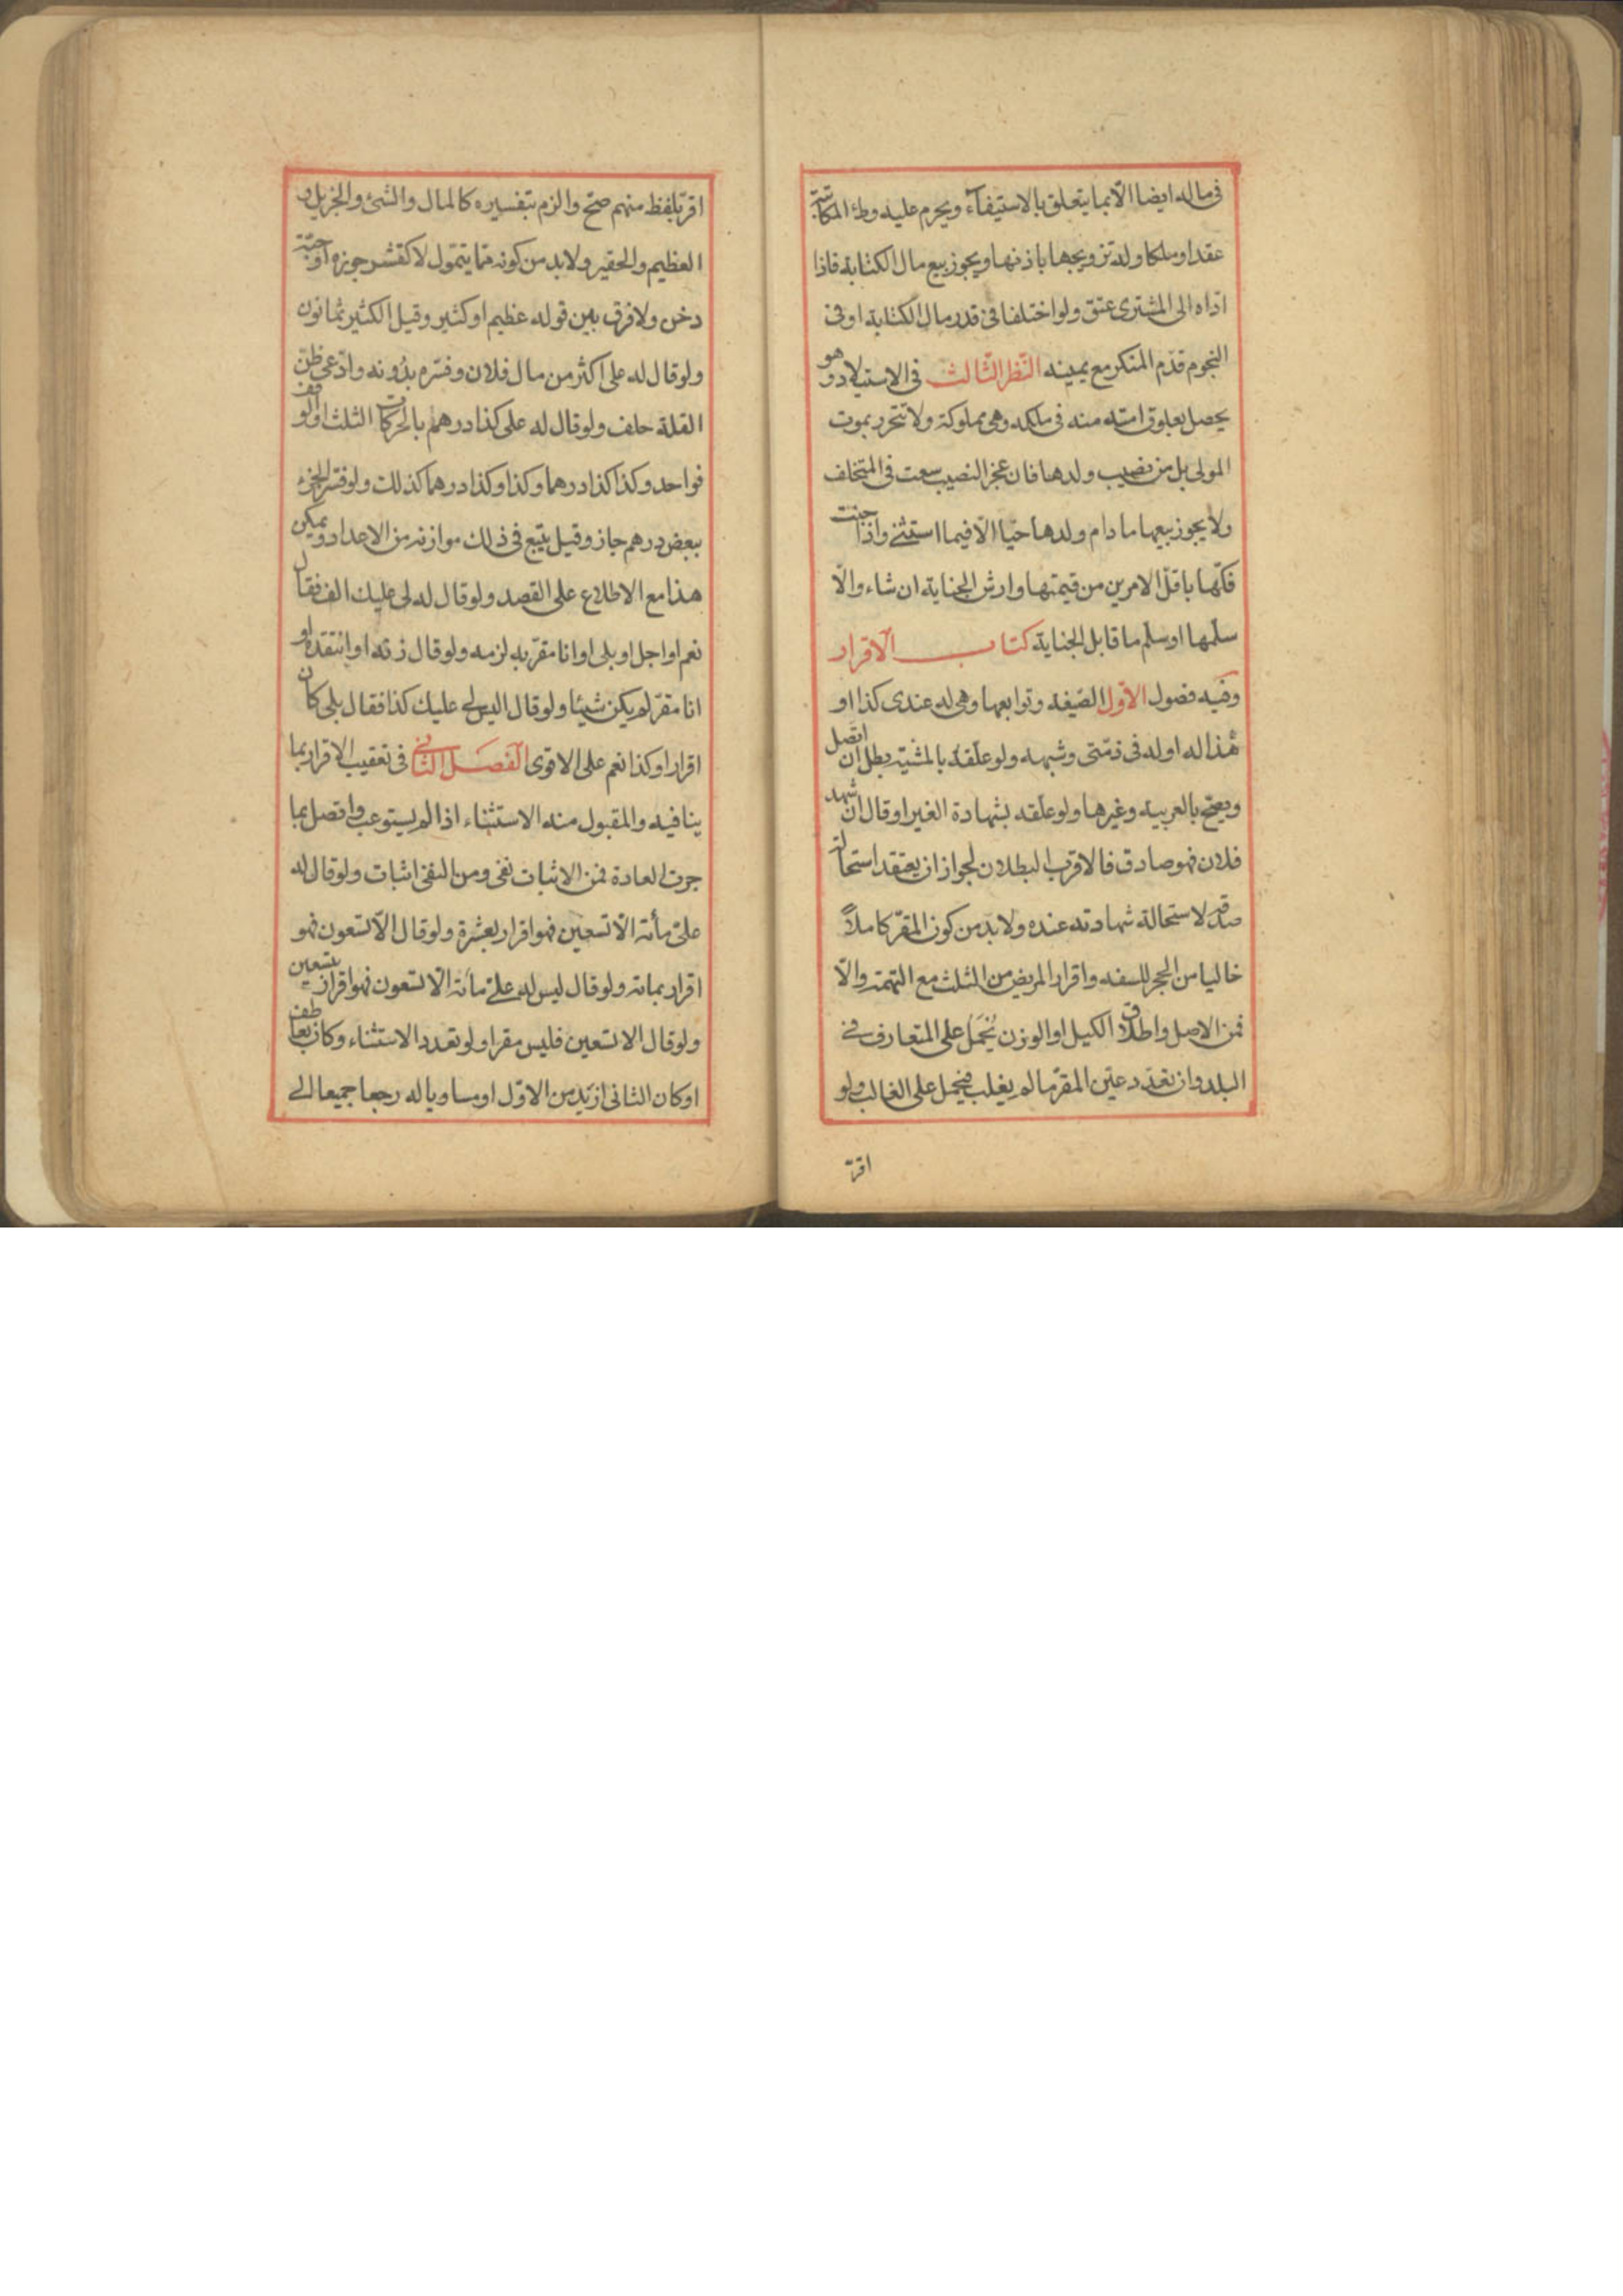 فى ماله ايضا الّا بما يتعلق بالاستيفآء ويحرم عليه وطء المكاتبة
عقدا وملكا وله تزويجها باذنها ويجوز بيع مال الكتابة فاذا
ادّاه الى المشترى عتق ولو اختلفا فى قدر مال الكتابة او فى
النجوم قدّم المنكر مع يمينه النّظر الثّالث فى الاستيلاد وهو
يحصل بعلوق امته منه فى ملكه وهى مملوكة ولا تتحرر بموت
المولى بل من نصيب ولدها فان عجز النصيب سعت فى المتخلف
ولا يجوز بيعها ما دام ولدها حيّا الّا فيما استثنى واذا جنت
فكّها باقلّ الامرين من قيمتها وارش الجناية ان شاء والّا
سلّمها او سلّم ما قابل الجناية كتاب الاقرار
وفيه فصول الاوّل الصّيغة وتوابعها وهى له عندى كذا او
هذا له او له فى ذمّتى وشبهه ولو علّقه بالمشيّة بطل ان اتّصل
ويصحّ بالعربية وغيرها ولو علّقه بشهادة الغير او قال ان شهد
فلان فهو صادق فالاقرب البطلان لجواز ان يعتقد استحالة
صدقه لاستحالة شهادته عنده ولا بدّ من كون المقرّ كاملاً
خاليا من الحجر للسفه واقرار المريض من الثلث مع التهمة والّا
فمن الاصل واطلاق الكيل او الوزن يُحْمَل على المتعارف فى
البلد وان تعدّد عيّن المقرّ ما لم يغلب فيحمل على الغالب ولو
اقرّ
اقرّ بلفظ مبهم صحّ والزم بتفسيره كالمال والشئ والجزيل و
العظيم والحقير ولا بد من كونه ممّا يتموّل لا كقشر جوزه او حبّة
دخن ولا فرق بين قوله عظيم او كثير وقيل الكثير ثمانون
ولو قال له على اكثر من مال فلان وفسّره بدُونه وادّعى ظنّ
القلة حلف ولو قال له على كذا درهم بالحركات الثلث او وقف
فواحد وكذا كذا درهما وكذا وكذا درهما كذلك ولو فسّر الجرّ
ببعض درهم جاز وقيل يتبع فى ذلك موازنه من الاعداد ويمكن
هذا مع الاطلاع على القصد ولو قال له لى عليك الف فقال
نعم او اجل او بلى او انا مقرّ به لزمه ولو قال زنه او انتقده او
انا مقرّ لم يكن شيئا ولو قال اليس لى عليك كذا فقال بلى كان
اقرارا وكذا نعم على الاقوى الفصل الثّانى فى تعقيب الاقرار بما
ينافيه والمقبول منه الاستثناء اذا لم يستوعب واتصل بما
جرت العادة فمن الاثبات نفى ومن النفى اثبات ولو قال له
علىّ مأئة الّا تسعين فهو اقرار بعشرة ولو قال الّا تسعون فهو
اقرار بمائة ولو قال ليس له علىّ مأئة الّا تسعون فهو اقرار بتسعين
ولو قال الا تسعين فليس مقرا ولو تعدد الاستثناء وكان بعاطف
او كان الثانى ازيد من الاوّل او مساويا له رجعا جميعا الى